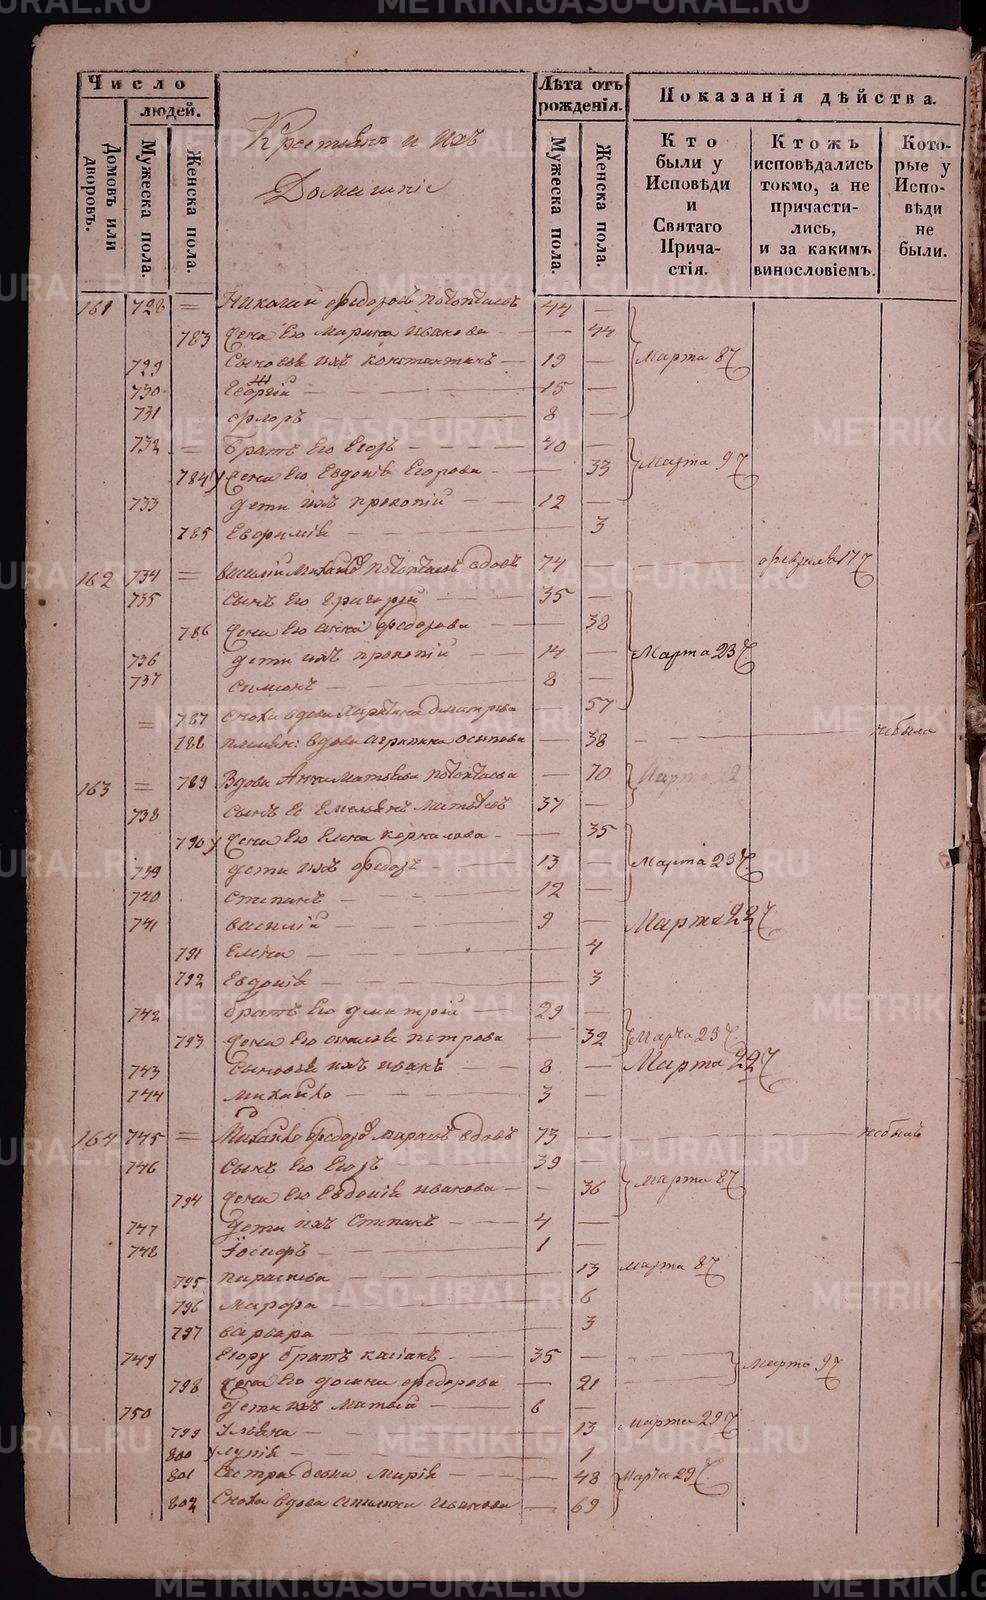 Число
людей.
Домовъ или дворовъ.
Мужеска пола.
Женска пола.
Крестьяне и ихъ
Домашніе
Лѣта отъ рожденія.
Мужеска пола.
Женска пола.
Показанія дѣйства.
Кто были у Исповѣди и Святаго Причастія.
Ктожъ исповѣдались токмо, а не причастились, и за какимъ винословіемъ.
Которые у Исповѣди не были.
161 728 = Николай Федоровъ 44 —
783 Жена Его Марина Иванова — — 44
729 Сыновья ихъ Константинъ — 19 — Марта 8
730 Георгій — 15 —
731 Флоръ — 8 —
732 = Братъ Его Егоръ — 40 —
784 Жена Его Евдокія Егорова — — 33 Марта 9
733 Дети ихъ Прокопій — 12 —
785 Евфимія — 3
162 734 = Василий Михайлов вдовъ 74 — Февраля 17
735 Сынъ Его Григорій — 35 —
786 Жена Его Анна Федорова — — 38
736 Дети ихъ Прокопій — 14 — Марта 23
737 Симеонъ — 8 —
= 787 Сноха вдова Дмитрева — 57
788 вдова Агрипина Осипова — 38 не была
163 = 789 Вдова Анна Матвѣева — 70 Марта
738 Сынъ Ее Емельянъ Матвѣевъ 37 —
790 Жена Его Елена — — 35
739 Дети ихъ Федоръ — 13 — Марта 23
740 Степанъ — 12 —
741 Василій — 9 — Марта 22
791 Елена — 4
792 Евдокія — 3
742 братъ Его Дмитрей — 29 —
793 Жена Его Петрова — 32 Марта 23
743 Сыновья ихъ Иванъ — 8 — Марта 22
744 Михайло — 3 —
164 745 = Михайло Федоров Марковъ вдовъ 73 — не былъ
746 Сынъ Его Егоръ 39 —
794 Жена Его Евдокія Иванова — — 36 Марта 8
747 Дети ихъ Степанъ — 4 —
748 Іосифъ — 1 —
795 Параскева — 13 Марта 8
796 Марфа — 6
797 Варвара — 3
749 Егору братъ Касіянъ — 35 — Марта 9
798 Жена Его Федорова — 21
750 Дети ихъ Матвѣй — 6 —
799 Ульяна — 13 Марта 29
800 — 1
801 Сестра девка Марія — 48 Марта 29
802 Сноха вдова Иванова — 69
METRIKI.GASO-URAL.RU